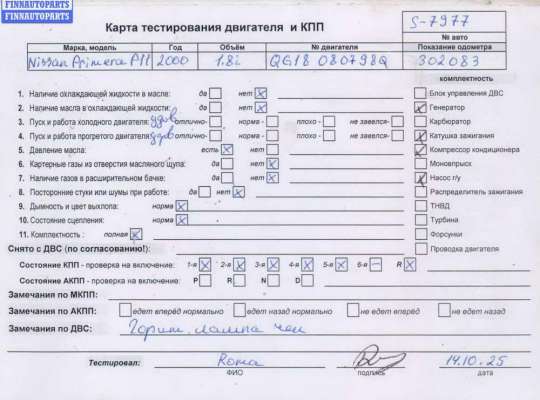 FINNAUTOPARTS
FINNAUTOPARTS
FINNAUTOPARTS
Карта тестирования двигателя и КПП
S-7977
№ авто
Марка, модель Год Объём № двигателя Показание одометра
Nissan Primera P11 2000 1.8i QG18 080798Q 302083
комплектность
1. Наличие охлаждающей жидкости в масле: да нет
Блок управления ДВС
2. Наличие масла в охлаждающей жидкости: да нет
Генератор
3. Пуск и работа холодного двигателя: удов отлично- норма - плохо - не завелся-
Карбюратор
4. Пуск и работа прогретого двигателя: удов отлично- норма - плохо - не завелся-
Катушка зажигания
5. Давление масла: есть нет
Компрессор кондиционера
6. Картерные газы из отверстия масляного щупа: да нет
Моновпрыск
7. Наличие газов в расширительном бачке: да нет
Насос г/у
8. Посторонние стуки или шумы при работе: да нет
Распределитель зажигания
9. Дымность и цвет выхлопа: норма
ТНВД
10. Состояние сцепления: норма
Турбина
11. Комплектность : полная
Форсунки
Снято с ДВС (по согласованию!):
Проводка двигателя
Состояние КПП - проверка на включение: 1-я 2-я 3-я 4-я 5-я 6-я R
Состояние АКПП - проверка на включение: P R N D
Замечания по МКПП:
Замечания по АКПП: едет вперёд нормально едет назад нормально не едет вперёд не едет назад
Замечания по ДВС: Горит. лампа чек
Тестировал: Roma 14.10.25
ФИО подпись дата